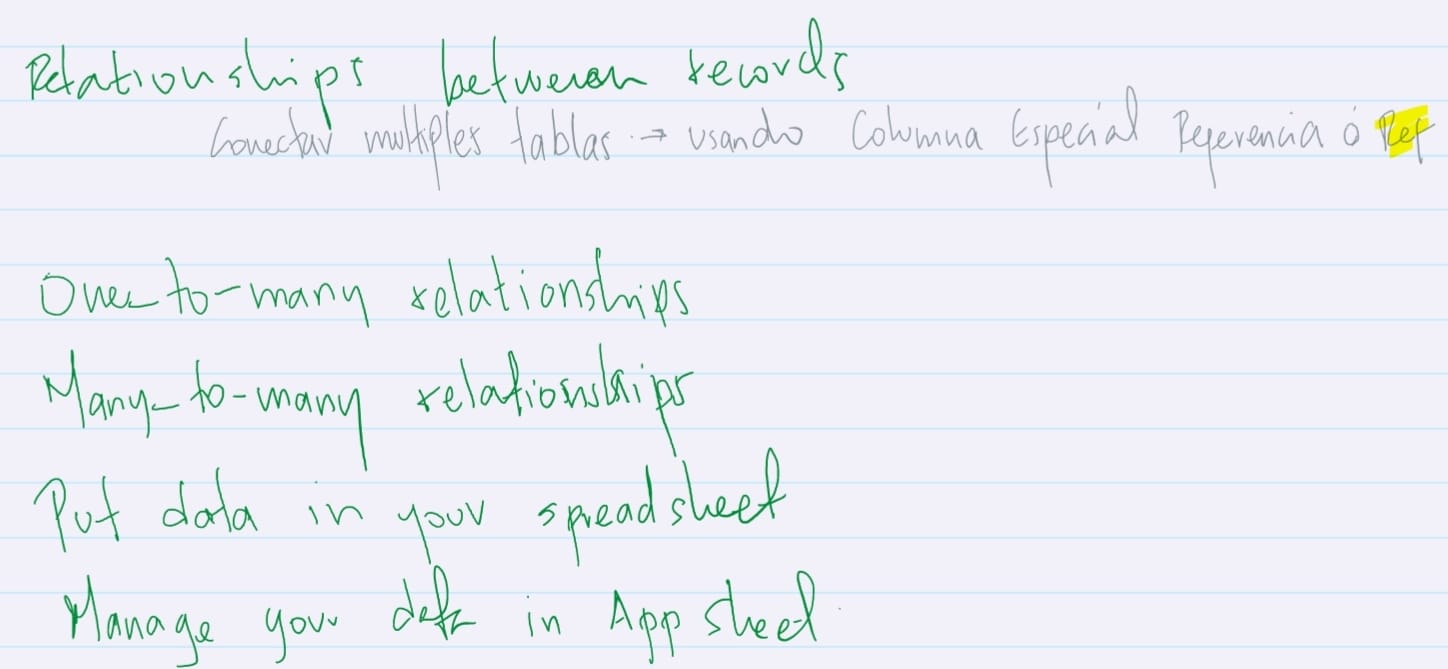 Relationships between records
Conectar multiples tablas → usando Columna Especial Referencia ó Ref
One-to-many relationships
Many-to-many relationships
Put data in your spreadsheet
Manage your data in App sheet